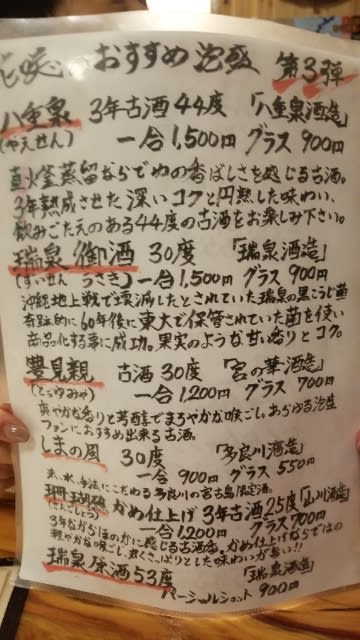 花咲のおすすめ泡盛 第3弾
八重泉 3年古酒44度 「八重泉酒造」
(やえせん) 一合1,500円 グラス900円
直火釜蒸留ならでわの香ばしさを感じる古酒。
3年熟成させた深いコクと円熟した味わい、
飲みごたえのある44度の古酒をお楽しみ下さい。
瑞泉 御酒 30度 「瑞泉酒造」
(ずいせん うさき) 一合1,500円 グラス900円
沖縄地上戦で壊滅したとされていた瑞泉の黒こうじ菌
奇跡的に60年後に東大で保管されていた菌を使い
商品化する事に成功。果実のような甘い香りとコク。
豊見親 古酒30度 「宮の華酒造」
(とぅゆみゃ) 一合1,200円 グラス700円
爽やかな香りと芳醇でまろやかな喉ごし。あらゆる泡盛
ファンにおすすめ出来る古酒。
しまの風 30度 「多良川酒造」
一合900円 グラス550円
米、水、手法にこだわる多良川の宮古島限定酒。
珊瑚礁 かめ仕上げ3年古酒25度「山川酒造」
(さんごしょう) 一合1,200円 グラス700円
3年ながらほのかに感じる古酒香。かめ仕上げならではの
軽やかな味わい。丸くさっぱりとした味わいが旨い!!
瑞泉原酒53度 「瑞泉酒造」
パーシャルショット 900円